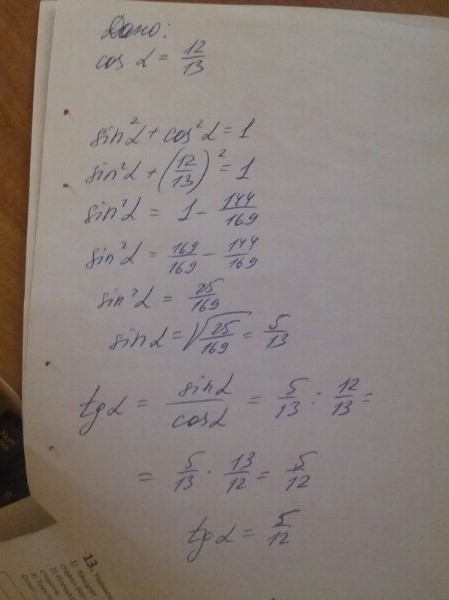 Дано:
cos α = 12/13
sin²α + cos²α = 1
sin²α + (12/13)² = 1
sin²α = 1 - 144/169
sin²α = 169/169 - 144/169
sin²α = 25/169
sin α = √25/169 = 5/13
tg α = sin α/cos α = 5/13 : 12/13 =
= 5/13 · 13/12 = 5/12
tg α = 5/12
13.